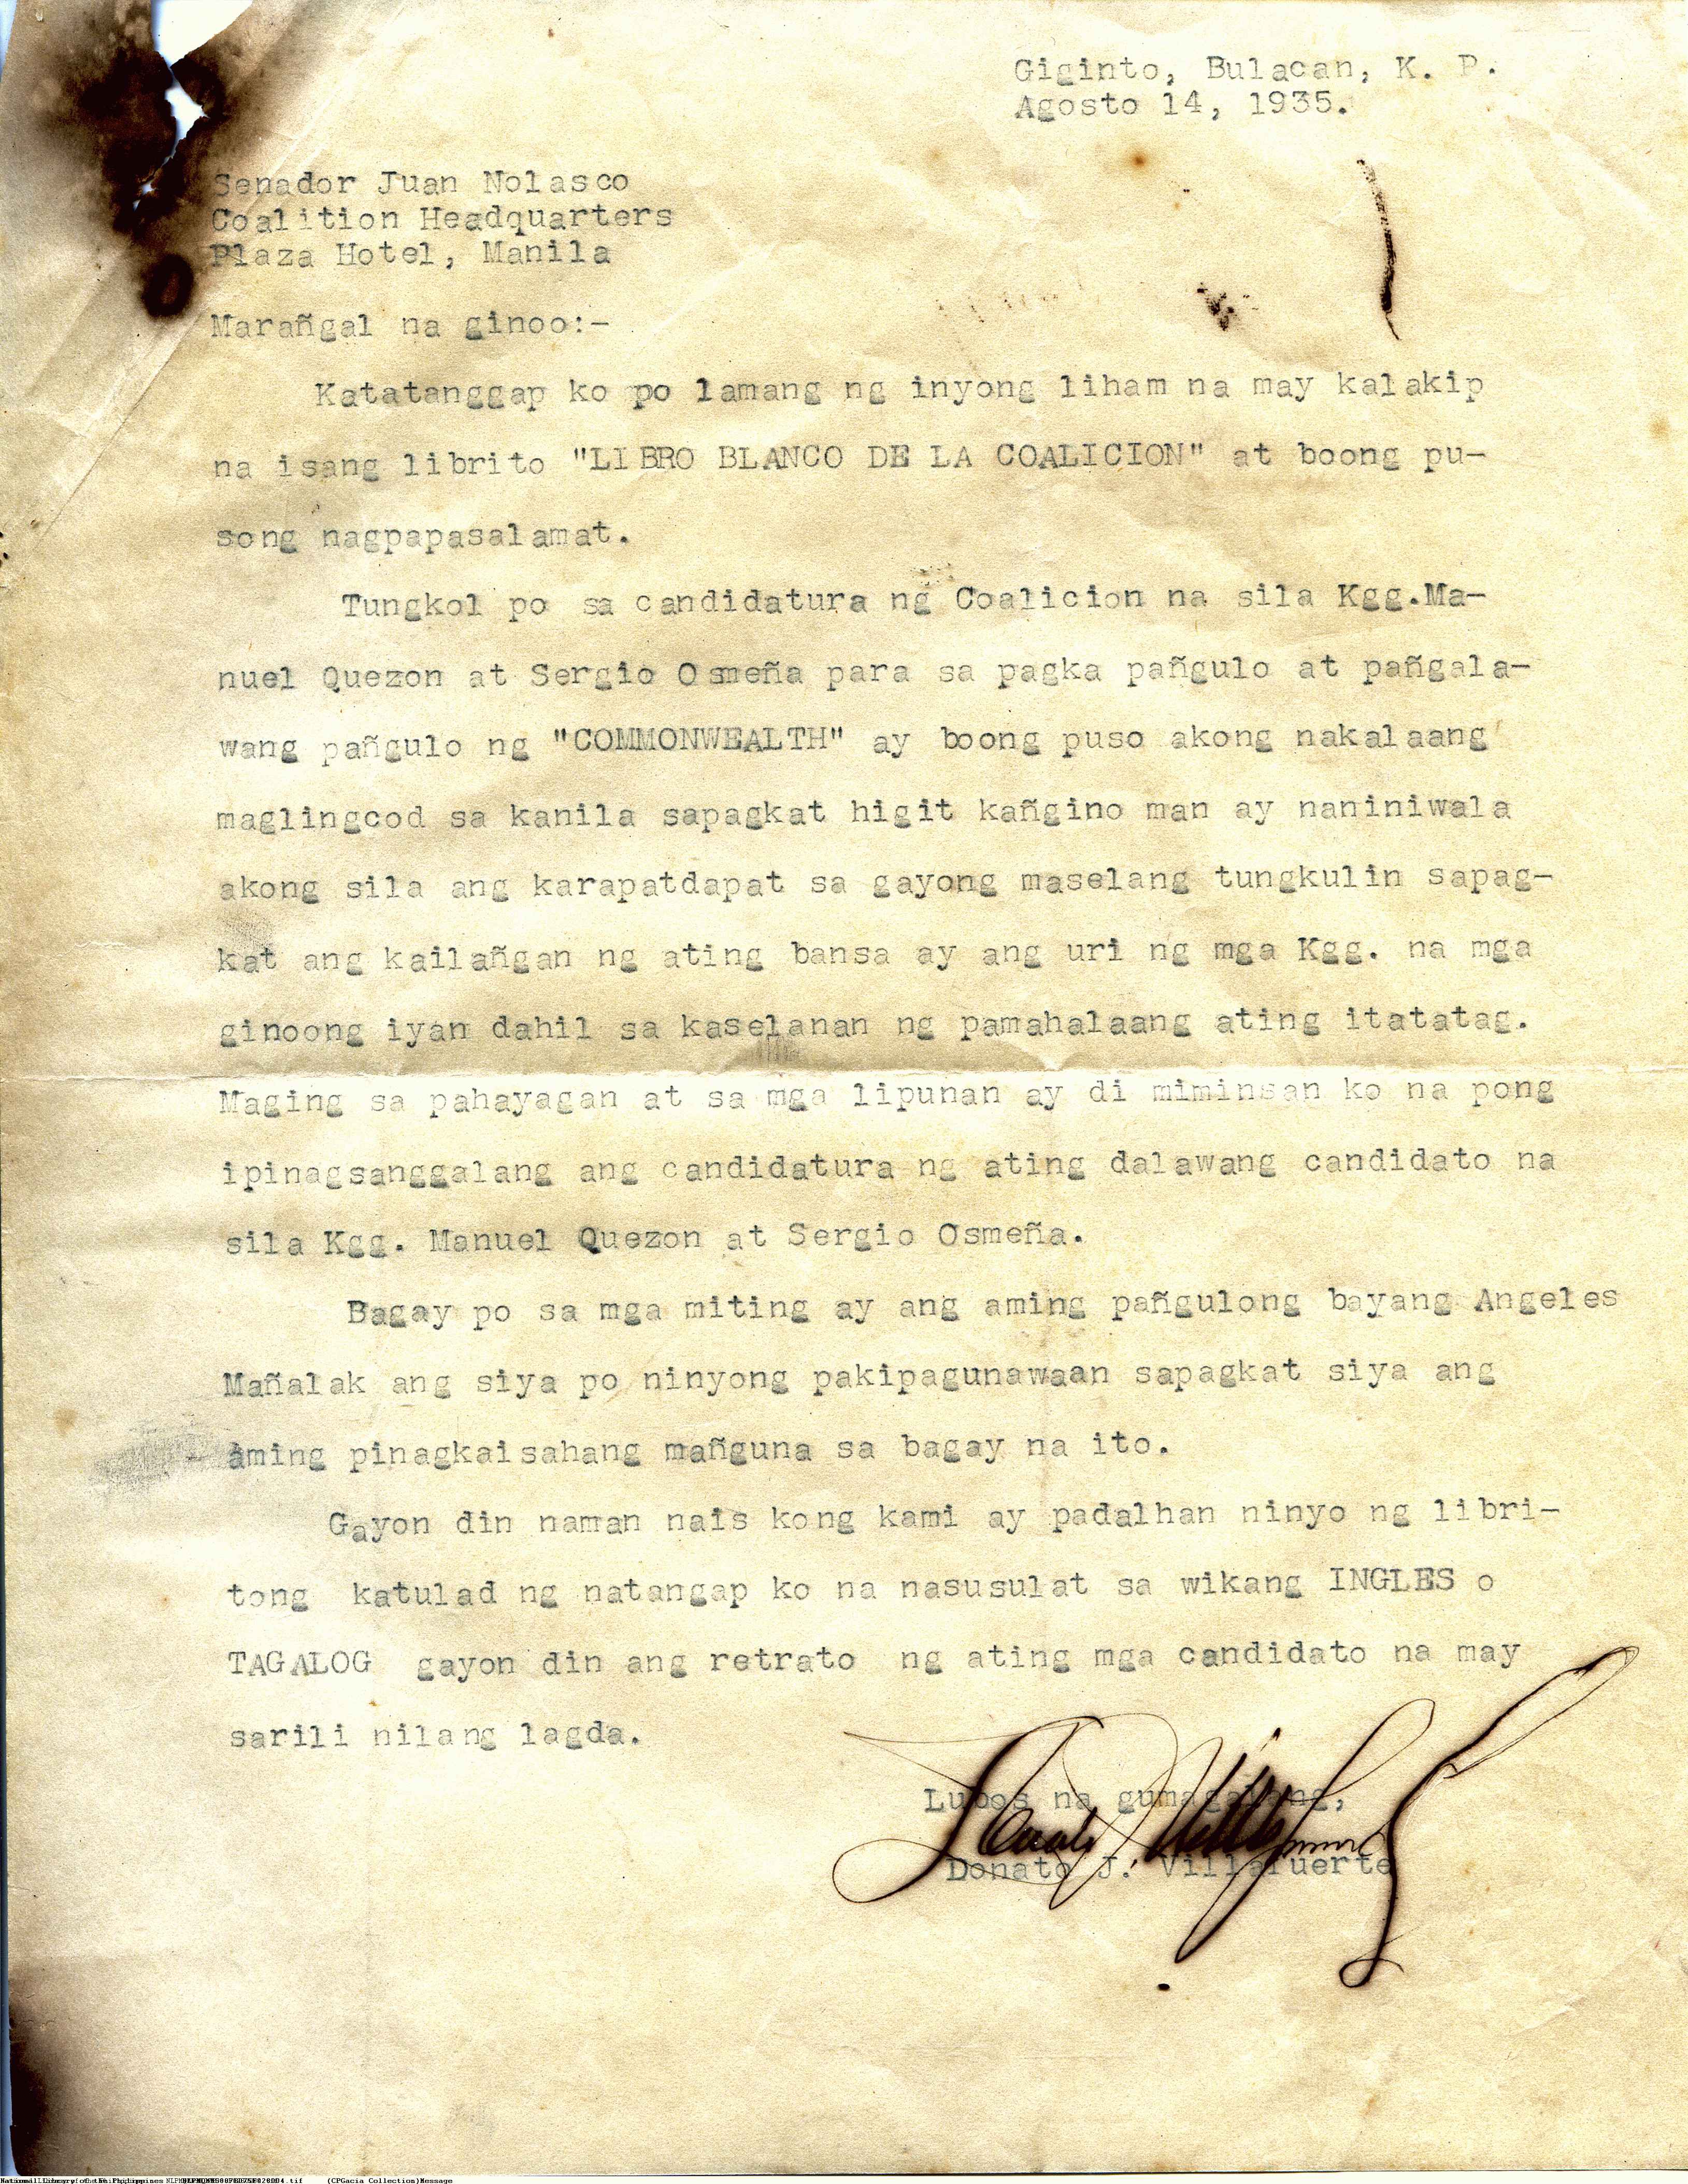 Giginto, Bulacan, K. P.
Agosto 14, 1935.
Senador Juan Nolasco
Coalition Headquarters
Plaza Hotel, Manila
Marañgal na ginoo:-
Katatanggap ko po lamang ng inyong liham na may kalakip
na isang librito "LIBRO BLANCO DE LA COALICION" at boong pu-
song nagpapasalamat.
Tungkol po sa candidatura ng Coalicion na sila Kgg.Ma-
nuel Quezon at Sergio Osmeña para sa pagka pañgulo at pañgala-
wang pañgulo ng "COMMONWEALTH" ay boong puso akong nakalaang
maglingcod sa kanila sapagkat higit kañgino man ay naniniwala
akong sila ang karapatdapat sa gayong maselang tungkulin sapag-
kat ang kailañgan ng ating bansa ay ang uri ng mga Kgg. na mga
ginoong iyan dahil sa kaselanan ng pamahalaang ating itatatag.
Maging sa pahayagan at sa mga lipunan ay di miminsan ko na pong
ipinagsanggalang ang candidatura ng ating dalawang candidato na
sila Kgg. Manuel Quezon at Sergio Osmeña.
Bagay po sa mga miting ay ang aming pañgulong bayang Angeles
Mañalak ang siya po ninyong pakipagunawaan sapagkat siya ang
aming pinagkaisahang mañguna sa bagay na ito.
Gayon din naman nais kong kami ay padalhan ninyo ng libri-
tong katulad ng natangap ko na nasusulat sa wikang INGLES o
TAGALOG gayon din ang retrato ng ating mga candidato na may
sarili nilang lagda.
Lubos na gumagalang,
Donato J. Villafuerte
(CPGacia Collection)Message